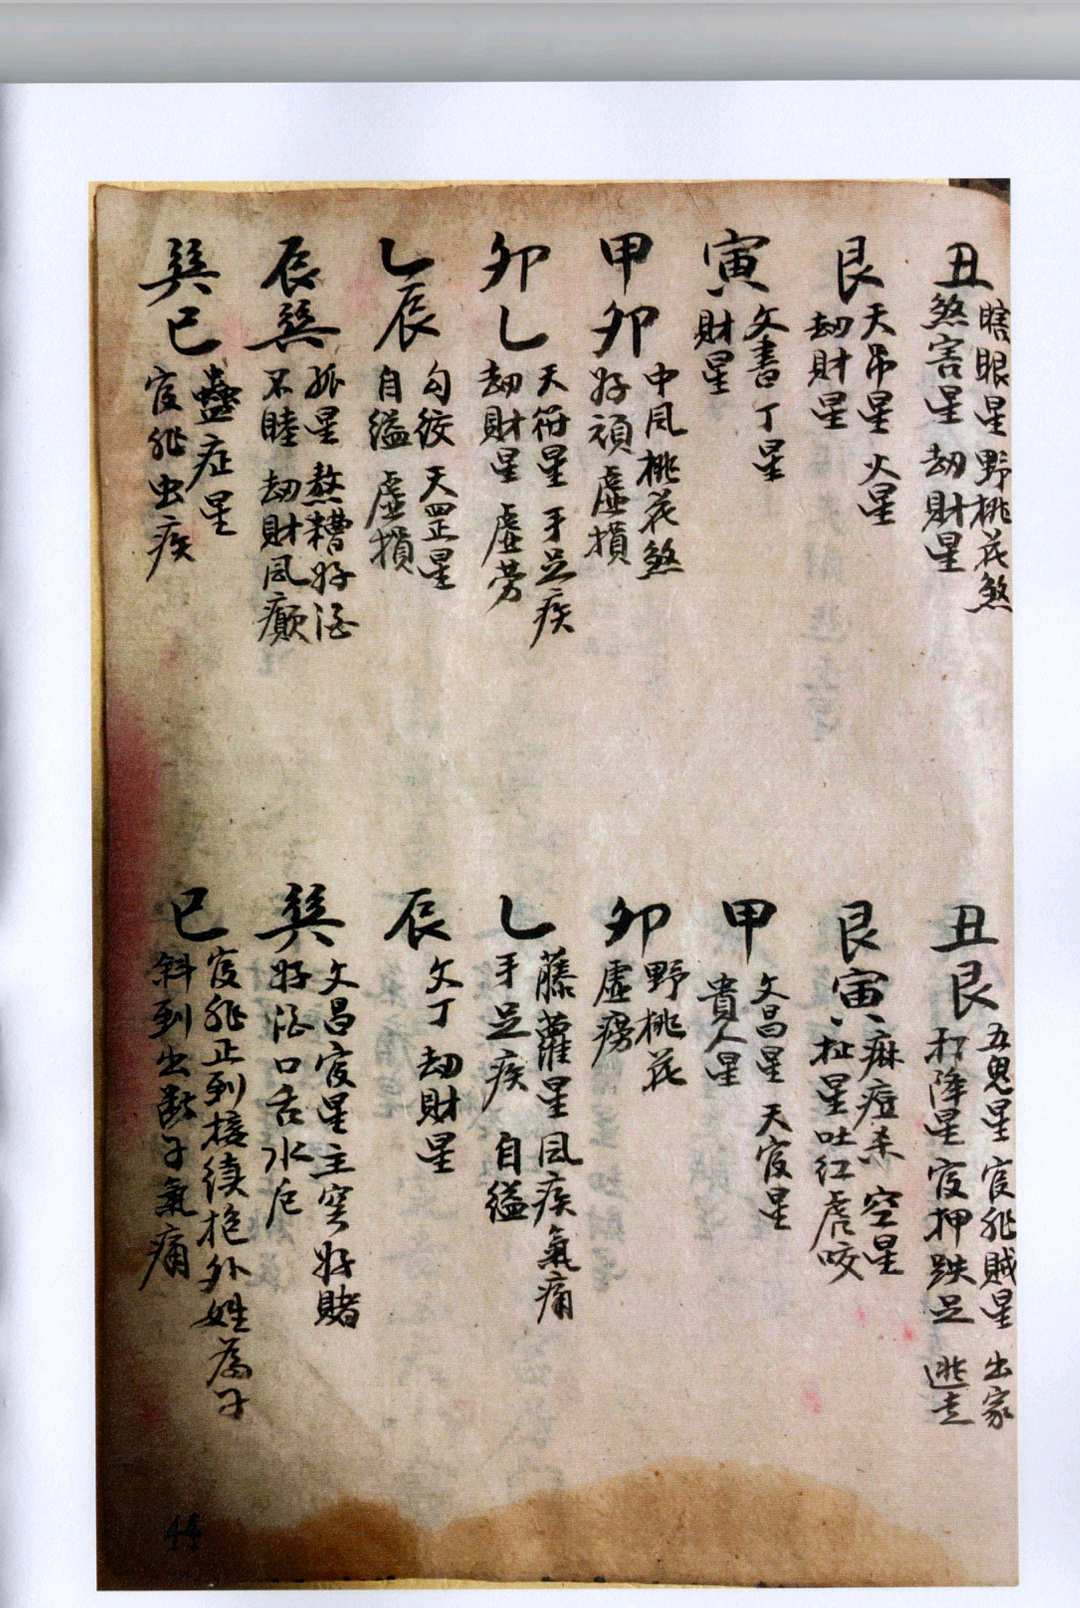 丑
瞎眼星野桃花煞
煞害星 劫財星
艮
天吊星 火星
劫財星
寅
文書丁星
財星
甲卯
中風桃花煞
好頑虛損
卯乙
天符星 手足疾
劫財星 虛勞
乙辰
勾絞 天罡星
自縊 虛損
辰巽
孤星 熬糟好酒
不睦 劫財風癲
巽巳
蠱症星
官非虫疾
丑艮
五鬼星 官非賊星 出家
打降星 官押跌足 逃走
艮寅
麻痘杀 空星
扯星吐紅虎咬
甲
文昌星 天官星
貴人星
卯
野桃花
虛癆
乙
藤蘿星風疾氣痛
手足疾 自縊
辰
文丁 劫財星
巽
文昌官星主窮好賭
好酒口舌水厄
巳
官非正到接續抱外姓為子
斜到出斷子氣痛
44